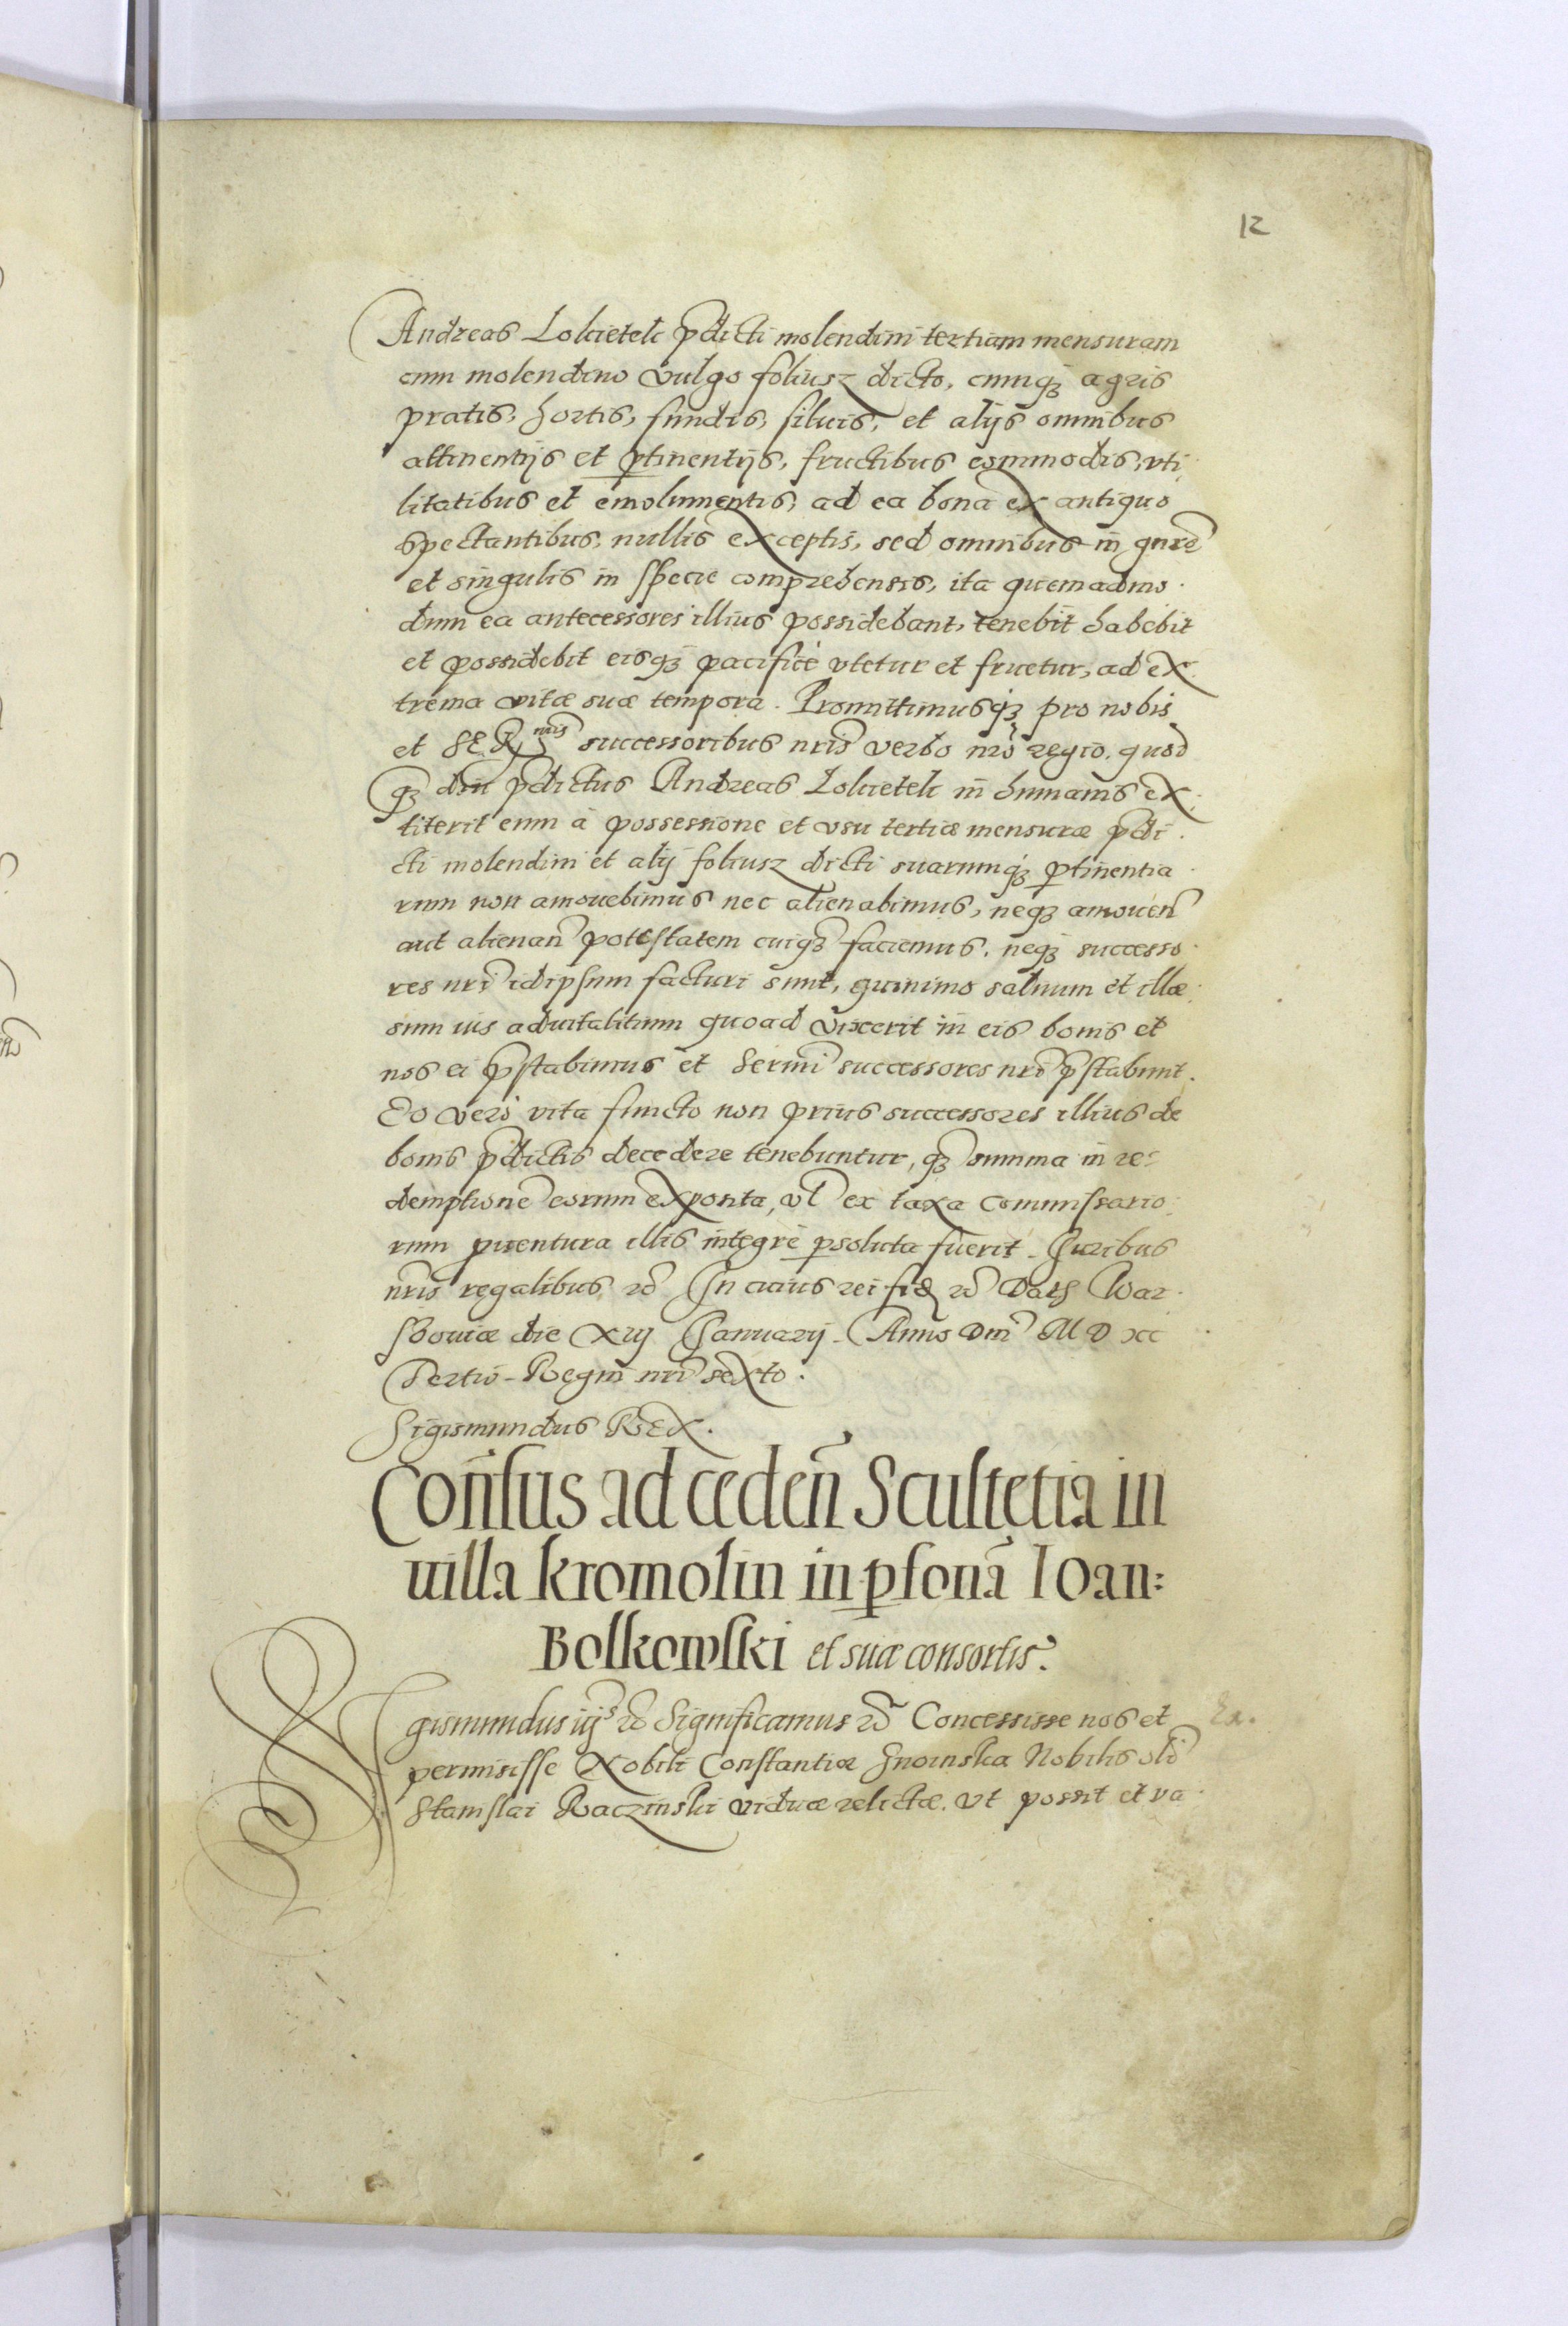 12
Andreas Lokietek pdicti molendini tertiam mensuram
cum molendino vulgo foliusz dicto, cumqꝫ agris
pratis, hortis, fundis, siluis, et alijs omnibus
attinentijs et ꝑtinentijs, fructibus commodis, vti
litatibus et emolumentis, ad ea bona ex antiquo
spectantibus, nullis exceptis, sed omnibus in gnre
et singulis in specie comprehensis, ita quemadmo
dum ea antecessores illius possidebant, tenebit habebit
et possidebit eisqꝫ pacificè vtetur et fruetur, ad ex
trema vitæ suæ tempora. Promittimusqꝫ pro nobis
et SERmis successoribus nris verbo nro regio. quod
qꝫ diu pdictus Andreas Lokietek in humanis ex
titerit eum à possessione et vsu tertiæ mensuræ pdi
cti molendini et alij foliusz dicti suarumqꝫ ꝑtinentia
rum non amouebimus nec alienabimus, neqꝫ amouen
aut alienan potestatem cuiqꝫ faciemus. neqꝫ successo
res nri idipsum facturi sunt, quinimo saluum et illæ
sum ius aduitalitium quoad vixerit in eis bonis et
nos ei pstabimus et Sermi successores nri pstabunt.
Eo verò vita functo non prius successores illius de
bonis pdictis decedere tenebuntur, qꝫ summa in re
demptione eorum exposita, vl ex taxa commissario
rum puentura illis integrè ꝑsoluta fuerit. Iuribus
nris regalibus, &c In cuius rei fid &c Dat War
souiæ die XIIJ Ianuarij. Anno Dni M D XC
Tertio. Regni nri sexto.
Sigismundus REX.
Consus ad ceden Scultetia in
uilla kromolin in ꝑsonā Ioan:
Bolkowski et suæ consortis.
Sigismundus iijs &c Significamus &c Concessisse nos et
permisisse Nobili Constantiæ Gnoinska Nobilis oli
Stanislai Raczinski viduæ relictæ. vt possit et va
Ex.